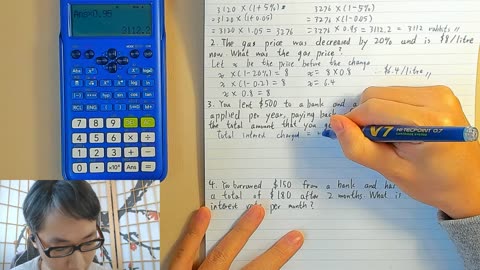 Ans×0.95
3112.2
3120 × (1+5%)
= 3276 × (1-5%)
= 3120 × (1+0.05)
= 3276 × (1-0.05)
= 3120 × 1.05 = 3276
= 3276 × 0.95 = 3112.2 = 3112 rabbits
2. The gas price was decreased by 20% and is $8/litre
now. What was the gas price?
Let x be the price before the change
x × (1-20%) = 8
x = 8 × 0.8
∴ $6.4/litre
x × (1-0.2) = 8
x = 6.4
x × 0.8 = 8
3. You lent $500 to a bank and a
applied per year, paying back
the total amount that you ge
Total interest charged =
V7 HI-TECPOINT 0.7
4. You borrowed $150 from a bank and has
a total of $180 after 2 months. What is
interest rate per month?